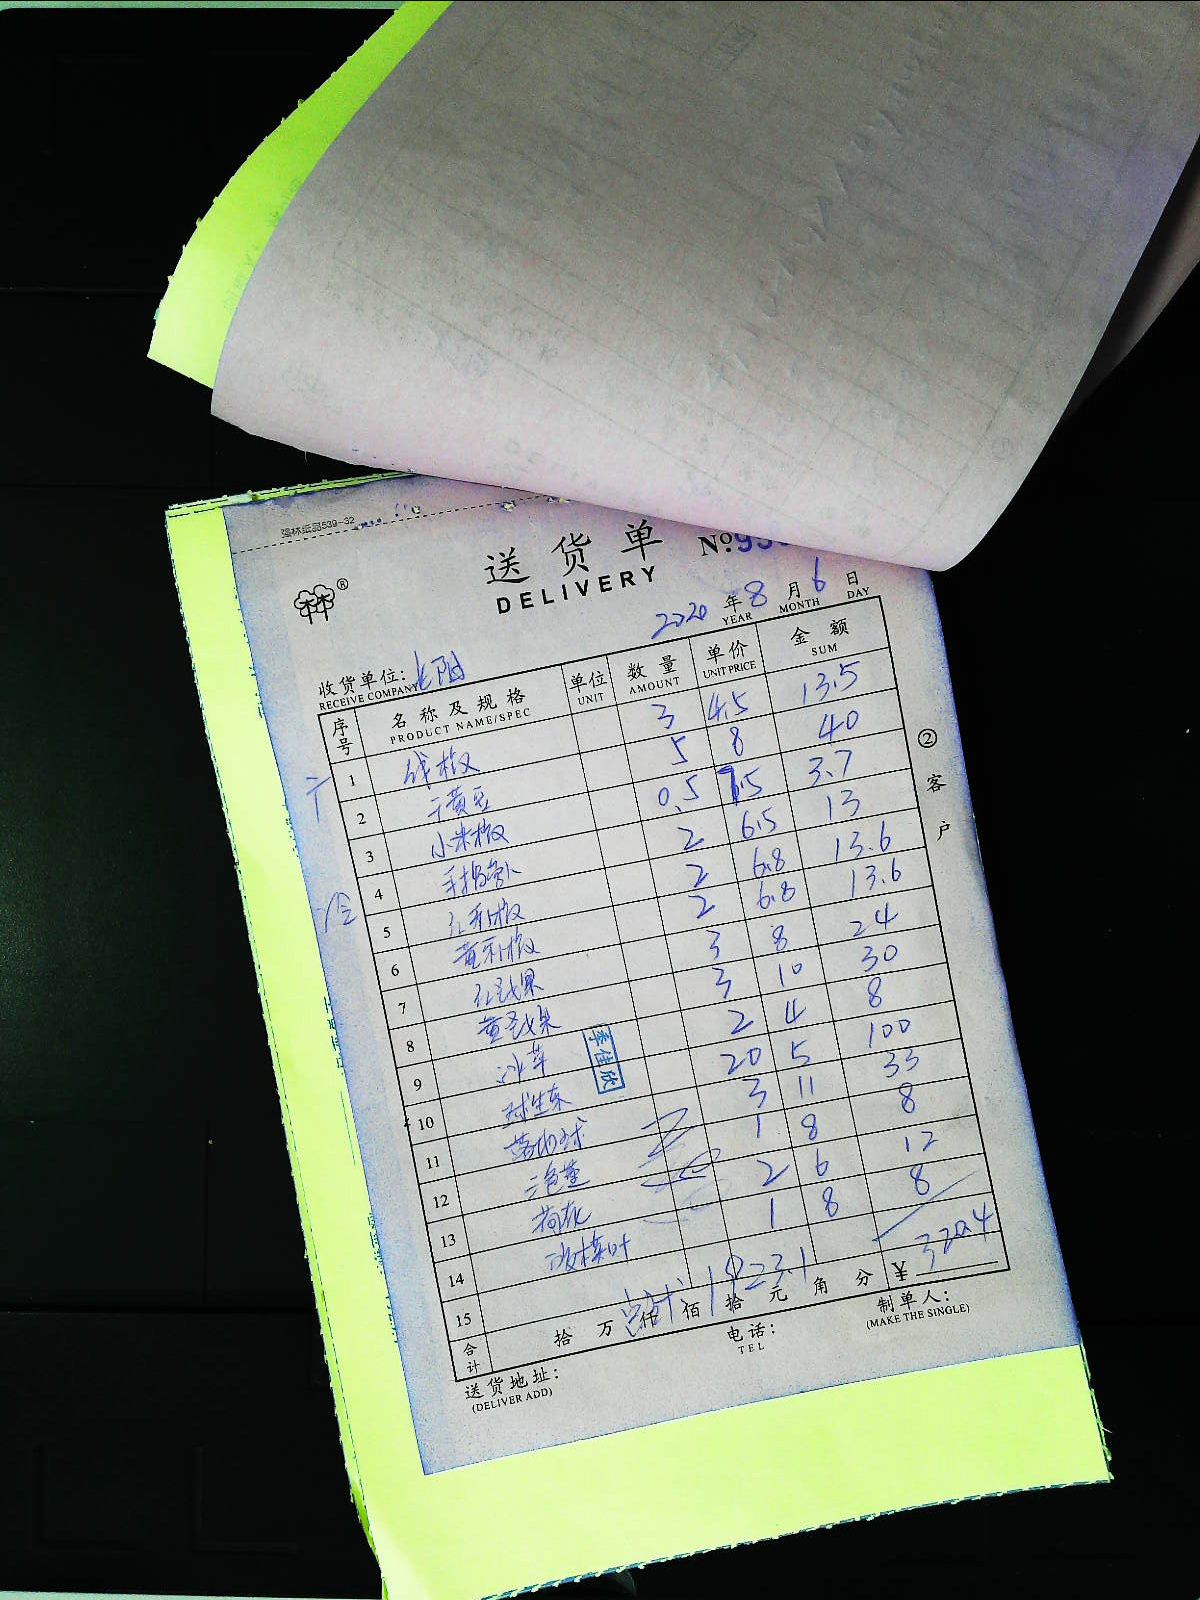 强林纸品539-32
送货单 No.93
DELIVERY
2020 年 8 月 6 日
YEAR MONTH DAY
收货单位: 长阳
RECEIVE COMPANY
序号 名称及规格 单位 数量 单价 金额
PRODUCT NAME/SPEC UNIT AMOUNT UNIT PRICE SUM
1 线椒 3 4.5 13.5
2 干黄豆 5 8 40
3 小米椒 0.5 7.5 3.7
4 手指萝卜 2 6.5 13
5 红彩椒 2 6.8 13.6
6 黄彩椒 2 6.8 13.6
7 红圣女果 3 8 24
8 黄圣女果 3 10 30
9 冰草 2 4 8
10 球生菜 20 5 100
11 3 11 33
12 三色堇 1 8 8
13 荷花 2 6 12
14 1 8 8
15
合计 拾 万 仟 佰 拾 元 角 分 ¥ 320.4
总计 1923.1
李佳欣
干
冷
②客户
送货地址: 电话: 制单人:
(DELIVER ADD) TEL (MAKE THE SINGLE)